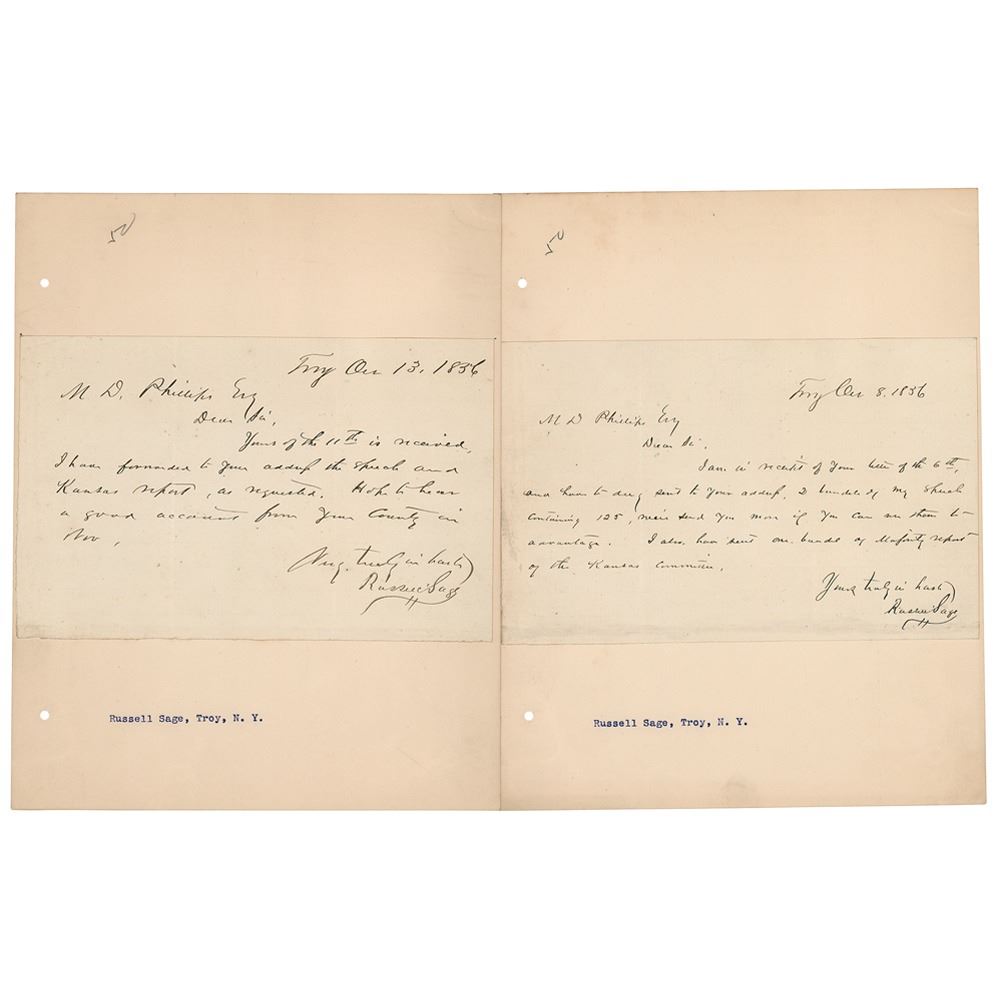 50
Troy Oct 13, 1856
M D. Phillips Esq
Dear Sir,
Yours of the 11th is received,
I have forwarded to your address the Speech and
Kansas report, as requested. Hope to hear
a good account from your County in
Nov,
Very truly in haste
Russell Sage
Russell Sage, Troy, N. Y.
50
Troy Oct 8. 1856
M D Phillips Esq
Dear Sir,
I am in receipt of your letter of the 6th,
and have to day sent to your address, 2 bundles of my Speech
containing 125, will send you more if you can use them to
advantage. I also, have sent one bundle of Majority report
of the Kansas Committee,
Yours truly in haste
Russell Sage
Russell Sage, Troy, N. Y.